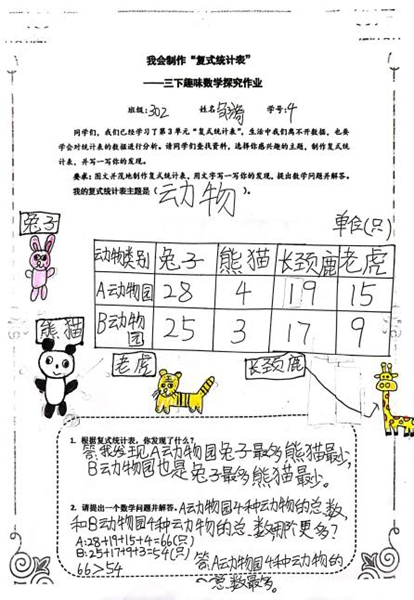 我会制作“复式统计表”
——三下趣味数学探究作业
班级:302 姓名 学号:4
同学们，我们已经学习了第3单元“复式统计表”，生活中我们离不开数据，也要
学会对统计表的数据进行分析。请同学们查找资料，选择你感兴趣的主题，制作复式统
计表，并写一写你的发现。
要求:图文并茂地制作复式统计表，用文字写一写你的发现，提出数学问题并解答。
我的复式统计表主题是(动物)。
兔子
单位(只)
动物类别 兔子 熊猫 长颈鹿 老虎
A动物园 28 4 19 15
B动物园 25 3 17 9
熊猫
老虎
长颈鹿
1. 根据复式统计表，你发现了什么?
答:我发现A动物园兔子最多熊猫最少,
B动物园也是兔子最多熊猫最少。
2. 请提出一个数学问题并解答。A动物园4种动物的总数
和B动物园4种动物的总数哪个更多?
A:28+19+15+4=66(只)
B:25+17+9+3=54(只)
66>54
答:A动物园4种动物的
总数最多。